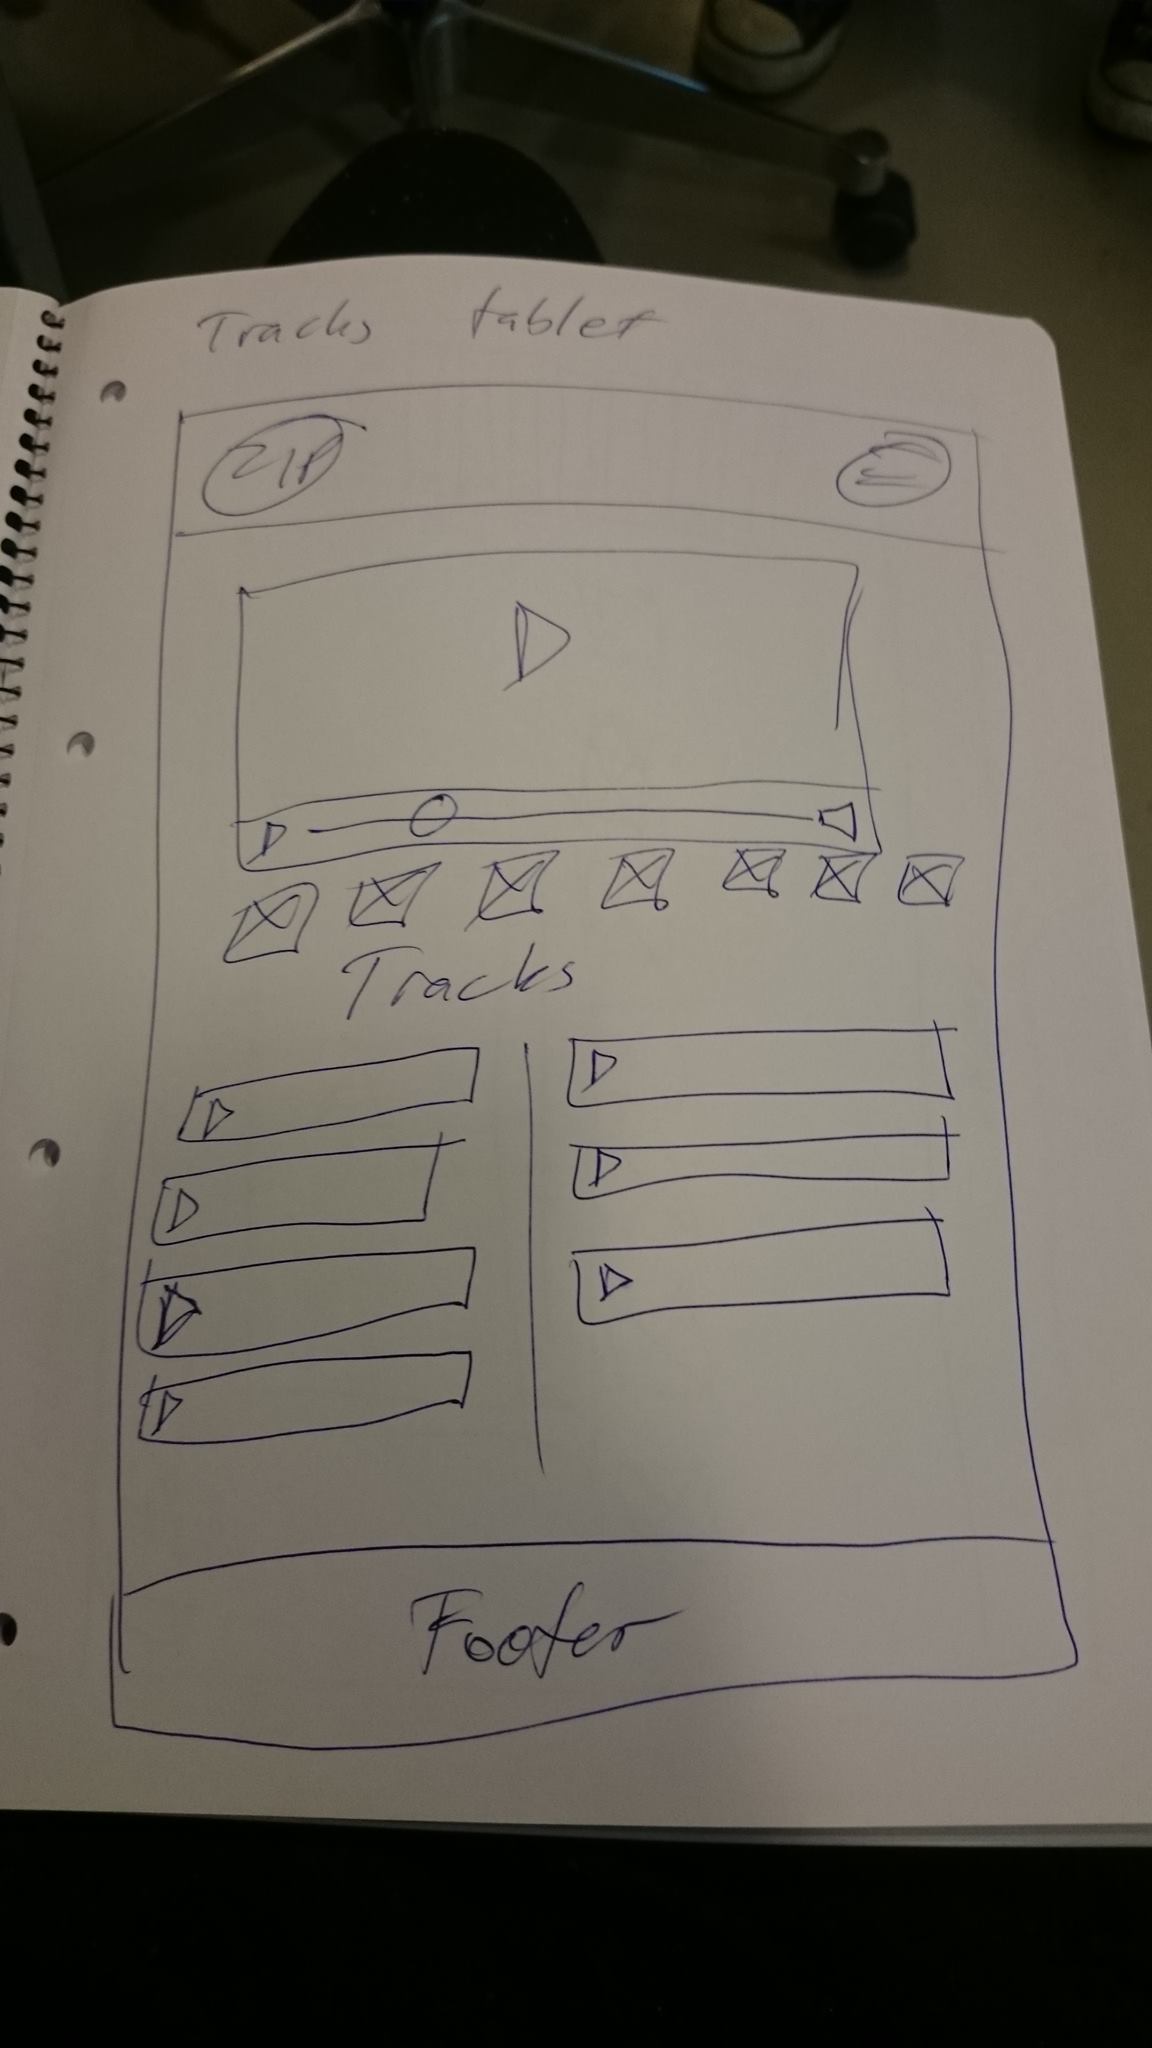 Tracks tablet
ZIP
Tracks
Footer